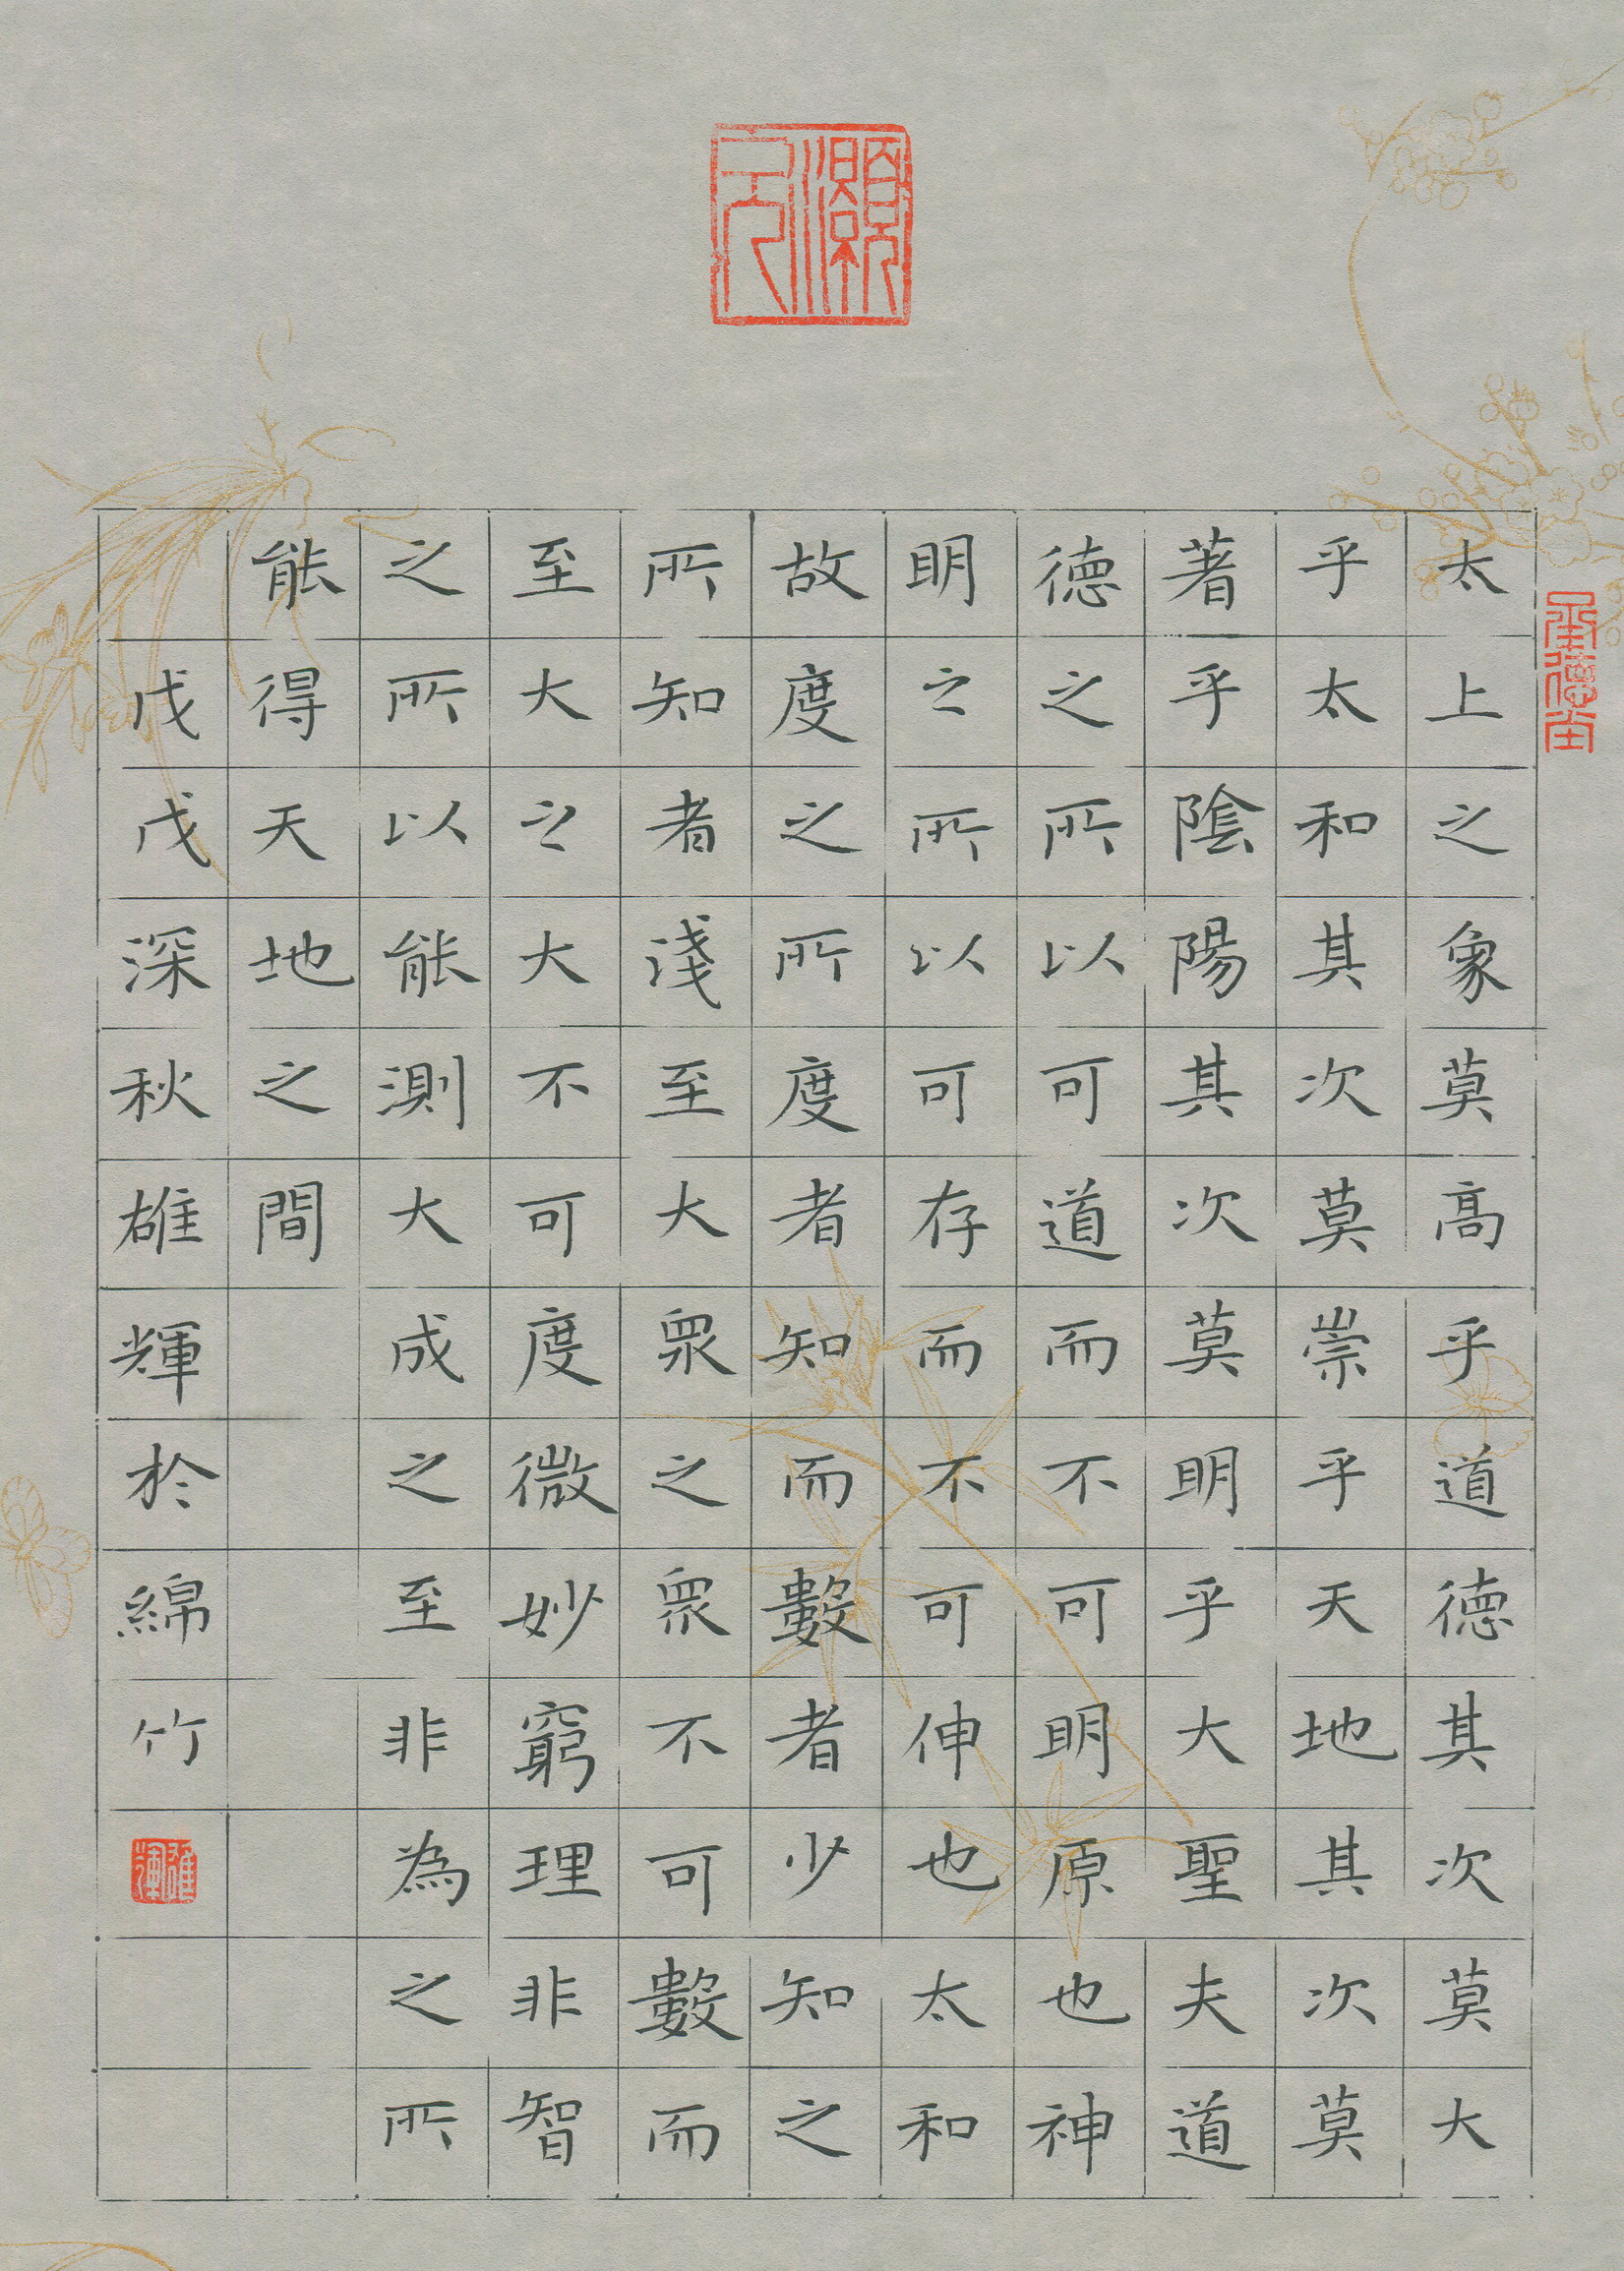 承德堂
太上之象莫高乎道德其次莫大
乎太和其次莫崇乎天地其次莫
著乎陰陽其次莫明乎大聖夫道
德之所以可道而不可明原也神
明之所以可存而不可伸也太和
故度之所度者知而數者少知之
所知者淺至大眾之眾不可數而
至大之大不可度微妙窮理非智
之所以能測大成之至非為之所
能得天地之間
戊戌深秋雄輝於綿竹
雄輝